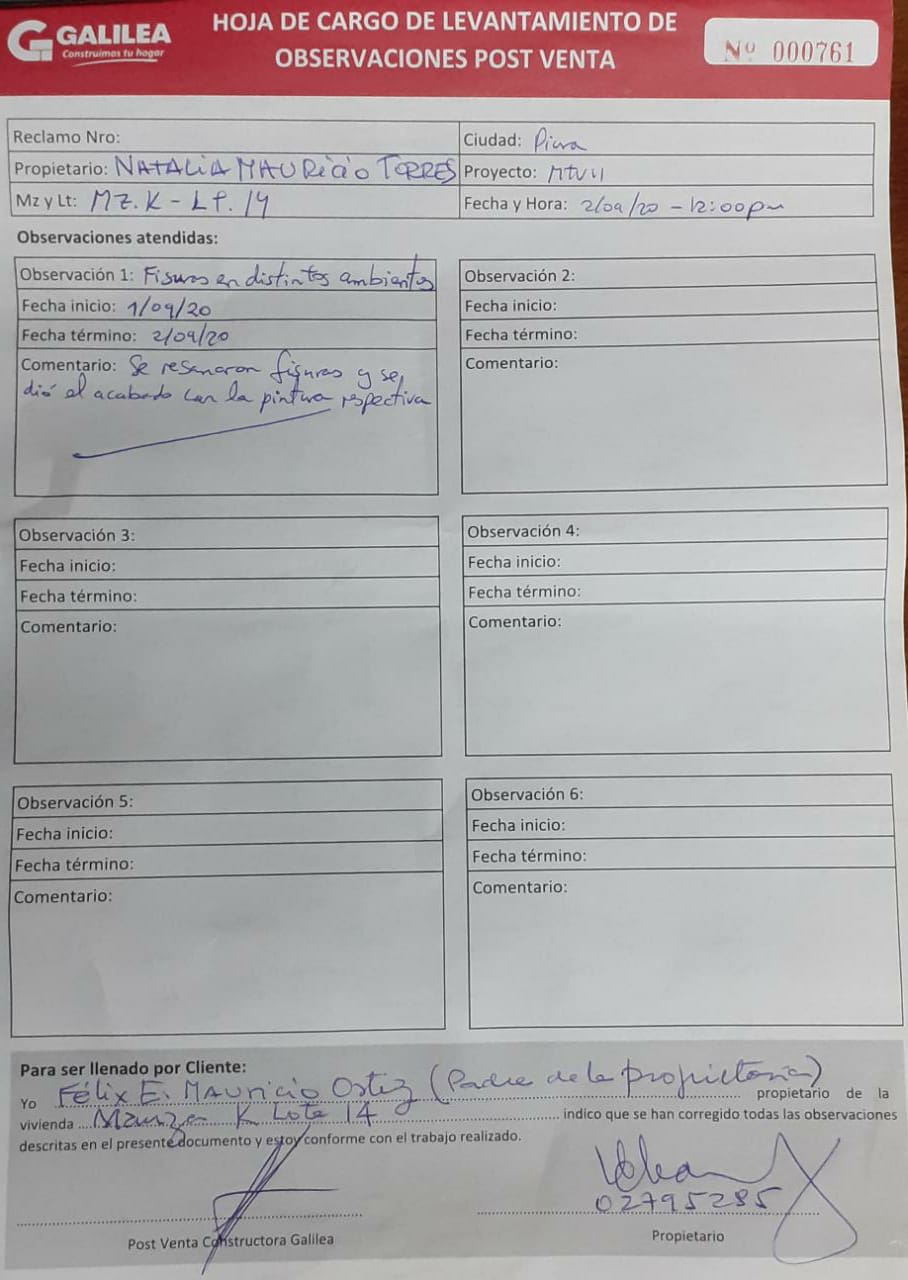 GALILEA
Construimos tu hogar
HOJA DE CARGO DE LEVANTAMIENTO DE
OBSERVACIONES POST VENTA
Nº 000761
Reclamo Nro:
Ciudad: Piura
Propietario: NATALIA MAURICIO TORRES
Proyecto: MTVII
Mz y Lt: MZ. K - LT. 14
Fecha y Hora: 2/09/20 - 12:00pm
Observaciones atendidas:
Observación 1: Fisuras en distintos ambientes
Fecha inicio: 1/09/20
Fecha término: 2/09/20
Comentario: Se resanaron fisuras y se
dió el acabado con la pintura respectiva
Observación 2:
Fecha inicio:
Fecha término:
Comentario:
Observación 3:
Fecha inicio:
Fecha término:
Comentario:
Observación 4:
Fecha inicio:
Fecha término:
Comentario:
Observación 5:
Fecha inicio:
Fecha término:
Comentario:
Observación 6:
Fecha inicio:
Fecha término:
Comentario:
Para ser llenado por Cliente:
Yo Félix E. Mauricio Ortiz (Padre de la propietaria) propietario de la
vivienda Manza K Lote 14 indico que se han corregido todas las observaciones
descritas en el presente documento y estoy conforme con el trabajo realizado.
02795285
Post Venta Constructora Galilea
Propietario